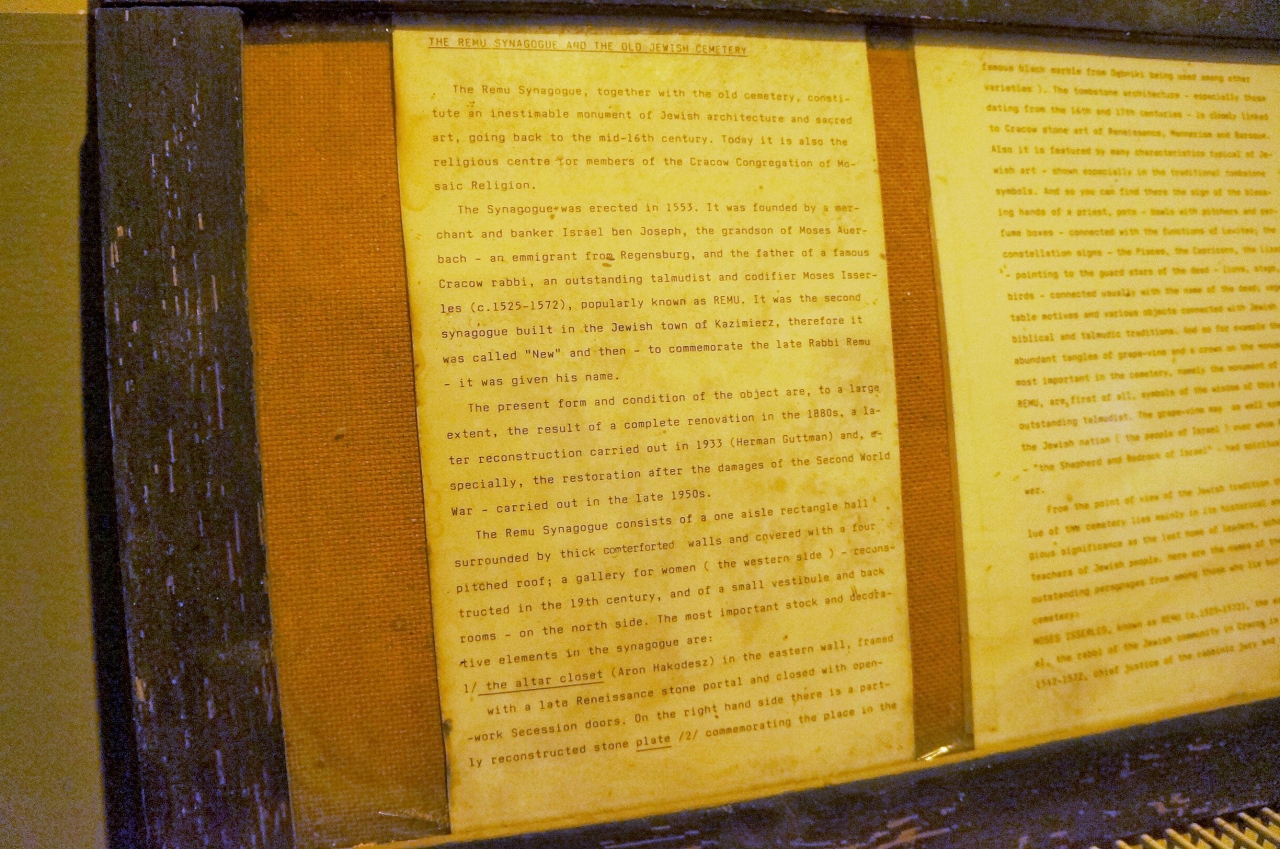 THE REMU SYNAGOGUE AND THE OLD JEWISH CEMETERY
The Remu Synagogue, together with the old cemetery, consti-
tute an inestimable monument of Jewish architecture and sacred
art, going back to the mid-16th century. Today it is also the
religious centre for members of the Cracow Congregation of Mo-
saic Religion.
The Synagogue was erected in 1553. It was founded by a mer-
chant and banker Israel ben Joseph, the grandson of Moses Auer-
bach - an emmigrant from Regensburg, and the father of a famous
Cracow rabbi, an outstanding talmudist and codifier Moses Isser-
les (c.1525-1572), popularly known as REMU. It was the second
synagogue built in the Jewish town of Kazimierz, therefore it
was called "New" and then - to commemorate the late Rabbi Remu
- it was given his name.
The present form and condition of the object are, to a large
extent, the result of a complete renovation in the 1880s, a la-
ter reconstruction carried out in 1933 (Herman Guttman) and, e-
specially, the restoration after the damages of the Second World
War - carried out in the late 1950s.
The Remu Synagogue consists of a one aisle rectangle hall
surrounded by thick comterforted walls and covered with a four
pitched roof; a gallery for women ( the western side ) - recons-
tructed in the 19th century, and of a small vestibule and back
rooms - on the north side. The most important stock and decora-
tive elements in the synagogue are:
1/ the altar closet (Aron Hakodesz) in the eastern wall, framed
with a late Reneissance stone portal and closed with open-
-work Secession doors. On the right hand side there is a part-
ly reconstructed stone plate /2/ commemorating the place in the
famous black marble from Dębniki being used among other
varieties ). The tombstone architecture - especially those
dating from the 16th and 17th centuries - is closely linked
to Cracow stone art of Renaissance, Mannerism and Baroque.
Also it is featured by many characteristics typical of Je-
wish art - shown especially in the traditional tombstone
symbols. And so you can find there the sign of the bless-
ing hands of a priest, pots - bowls with pitchers and per-
fume boxes - connected with the functions of Levites; the
constellation signs - the Pisces, the Capricorn, the
- pointing to the guard stars of the dead - lions, stags,
birds - connected usually with the name of the dead;
table motives and various objects connected with Jewish
biblical and talmudic traditions. And so for example the
abundant tangles of grape-vine and a crown on the
most important in the cemetery, namely the monument of
REMU, are, first of all, symbols of wisdom of this
outstanding talmudist. The grape-vine may, as well
the Jewish nation ( the people of Israel ) over whom
- "the Shepherd and Bedrock of Israel" - had
wer.
From the point of view of the Jewish tradition
lue of the cemetery lies mainly in its historical
gious significance as the last home of leaders,
teachers of Jewish people. Here are the names of
outstanding personages from among those who lie
cemetery:
MOSES ISSERLES, known as REMU (c.1525-1572), the
el, the rabbi of the Jewish community in Cracow in
1547-1572, chief justice of the rabbinic jury and